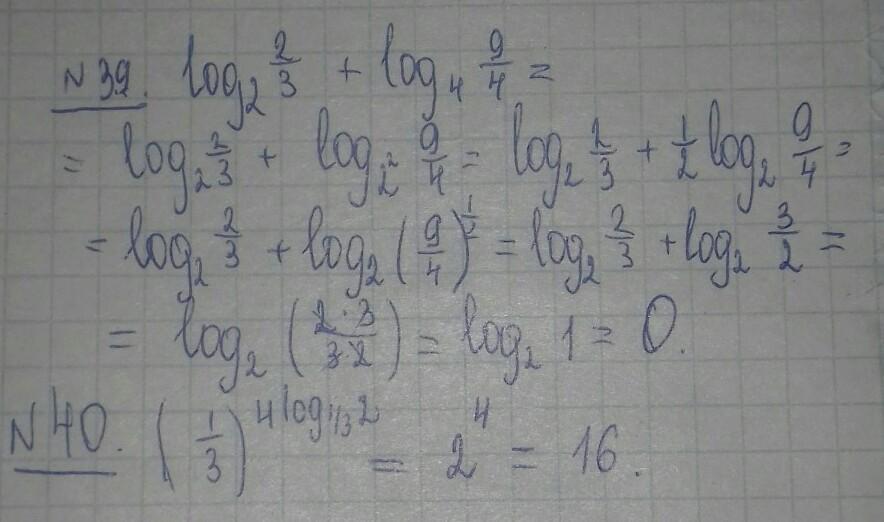 N39. log₂ 2/3 + log₄ 9/4 =
= log₂ 2/3 + log_{2²} 9/4 = log₂ 2/3 + 1/2 log₂ 9/4 =
= log₂ 2/3 + log₂ (9/4)^{1/2} = log₂ 2/3 + log₂ 3/2 =
= log₂ (2·3/3·2) = log₂ 1 = 0.
N40. (1/3)^{4 log_{1/3} 2} = 2⁴ = 16.